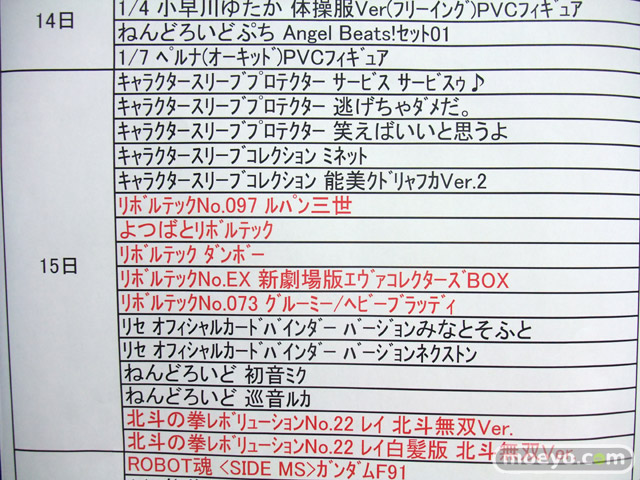 14日
1/4 小早川ゆたか 体操服Ver(ﾌﾘｰｲﾝｸﾞ)PVCﾌｨｷﾞｭｱ
ねんどろいどぷち Angel Beats!ｾｯﾄ01
1/7 ﾍﾟﾙﾅ(ｵｰｷｯﾄﾞ)PVCﾌｨｷﾞｭｱ
15日
ｷｬﾗｸﾀｰｽﾘｰﾌﾞﾌﾟﾛﾃｸﾀｰ ｻｰﾋﾞｽ ｻｰﾋﾞｽｩ♪
ｷｬﾗｸﾀｰｽﾘｰﾌﾞﾌﾟﾛﾃｸﾀｰ 逃げちゃﾀﾞﾒだ。
ｷｬﾗｸﾀｰｽﾘｰﾌﾞﾌﾟﾛﾃｸﾀｰ 笑えばいいと思うよ
ｷｬﾗｸﾀｰｽﾘｰﾌﾞｺﾚｸｼｮﾝ ﾐﾈｯﾄ
ｷｬﾗｸﾀｰｽﾘｰﾌﾞｺﾚｸｼｮﾝ 能美ｸﾄﾞﾘｬﾌｶVer.2
ﾘﾎﾞﾙﾃｯｸNo.097 ﾙﾊﾟﾝ三世
よつばとﾘﾎﾞﾙﾃｯｸ
ﾘﾎﾞﾙﾃｯｸ ﾀﾞﾝﾎﾞｰ
ﾘﾎﾞﾙﾃｯｸNo.EX 新劇場版ｴｳﾞｧｺﾚｸﾀｰｽﾞBOX
ﾘﾎﾞﾙﾃｯｸNo.073 ｸﾞﾙｰﾐｰ/ﾍﾋﾞｰﾌﾞﾗｯﾃﾞｨ
ﾘｾ ｵﾌｨｼｬﾙｶｰﾄﾞﾊﾞｲﾝﾀﾞｰ ﾊﾞｰｼﾞｮﾝみなとそふと
ﾘｾ ｵﾌｨｼｬﾙｶｰﾄﾞﾊﾞｲﾝﾀﾞｰ ﾊﾞｰｼﾞｮﾝﾈｸｽﾄﾝ
ねんどろいど 初音ﾐｸ
ねんどろいど 巡音ﾙｶ
北斗の拳ﾚﾎﾞﾘｭｰｼｮﾝNo.22 ﾚｲ 北斗無双Ver.
北斗の拳ﾚﾎﾞﾘｭｰｼｮﾝNo.22 ﾚｲ白髪版 北斗無双Ver.
ROBOT魂 <SIDE MS>ｶﾞﾝﾀﾞﾑF91
moeyo.com